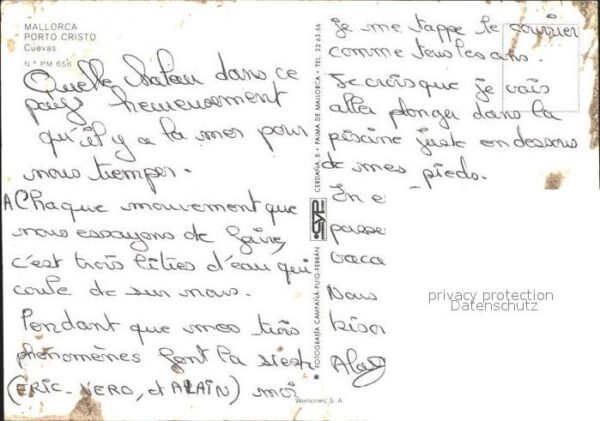 MALLORCA
PORTO CRISTO
Cuevas
N.º PM 656
Quelle chaleur dans ce
pays heureusement
qu'il y a la mer pour
nous tremper.
A Chaque mouvement que
nous essayons de faire,
c'est trois litres d'eau qui
coule de sur nous.
Pendant que mes trois
phénomènes font la sieste
(ERIC - VERO, et ALAÏN) moi
Je me tappe le courrier
comme tous les ans.
Je crois que je vais
aller plonger dans la
piscine juste en dessous
de mes pieds.
passe
vaca
Nous
bison
privacy protection
Datenschutz
CERDAÑA, 8 • PALMA DE MALLORCA • TEL. 22 63 56
FOTOGRAFIA CAMPAÑÁ-PUIG-FERRÁN